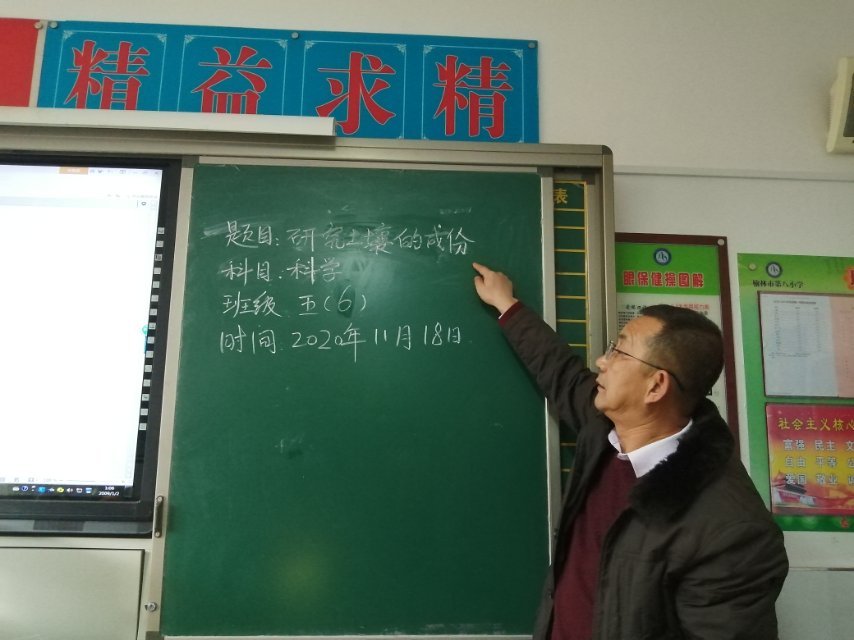 精益求精
题目:研究土壤的成份
科目:科学
班级 五(6)
时间.2020年11月18日
表
眼保健操图解
榆林市第八小学
社会主义核心
富强 民主 文
自由 平等 公
爱国 敬业
3:08
2009/1/2